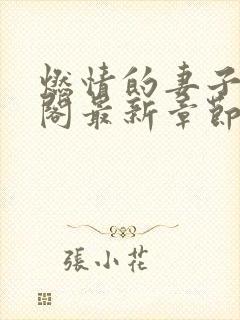 燃情的妻子
閣最新章節
張小花